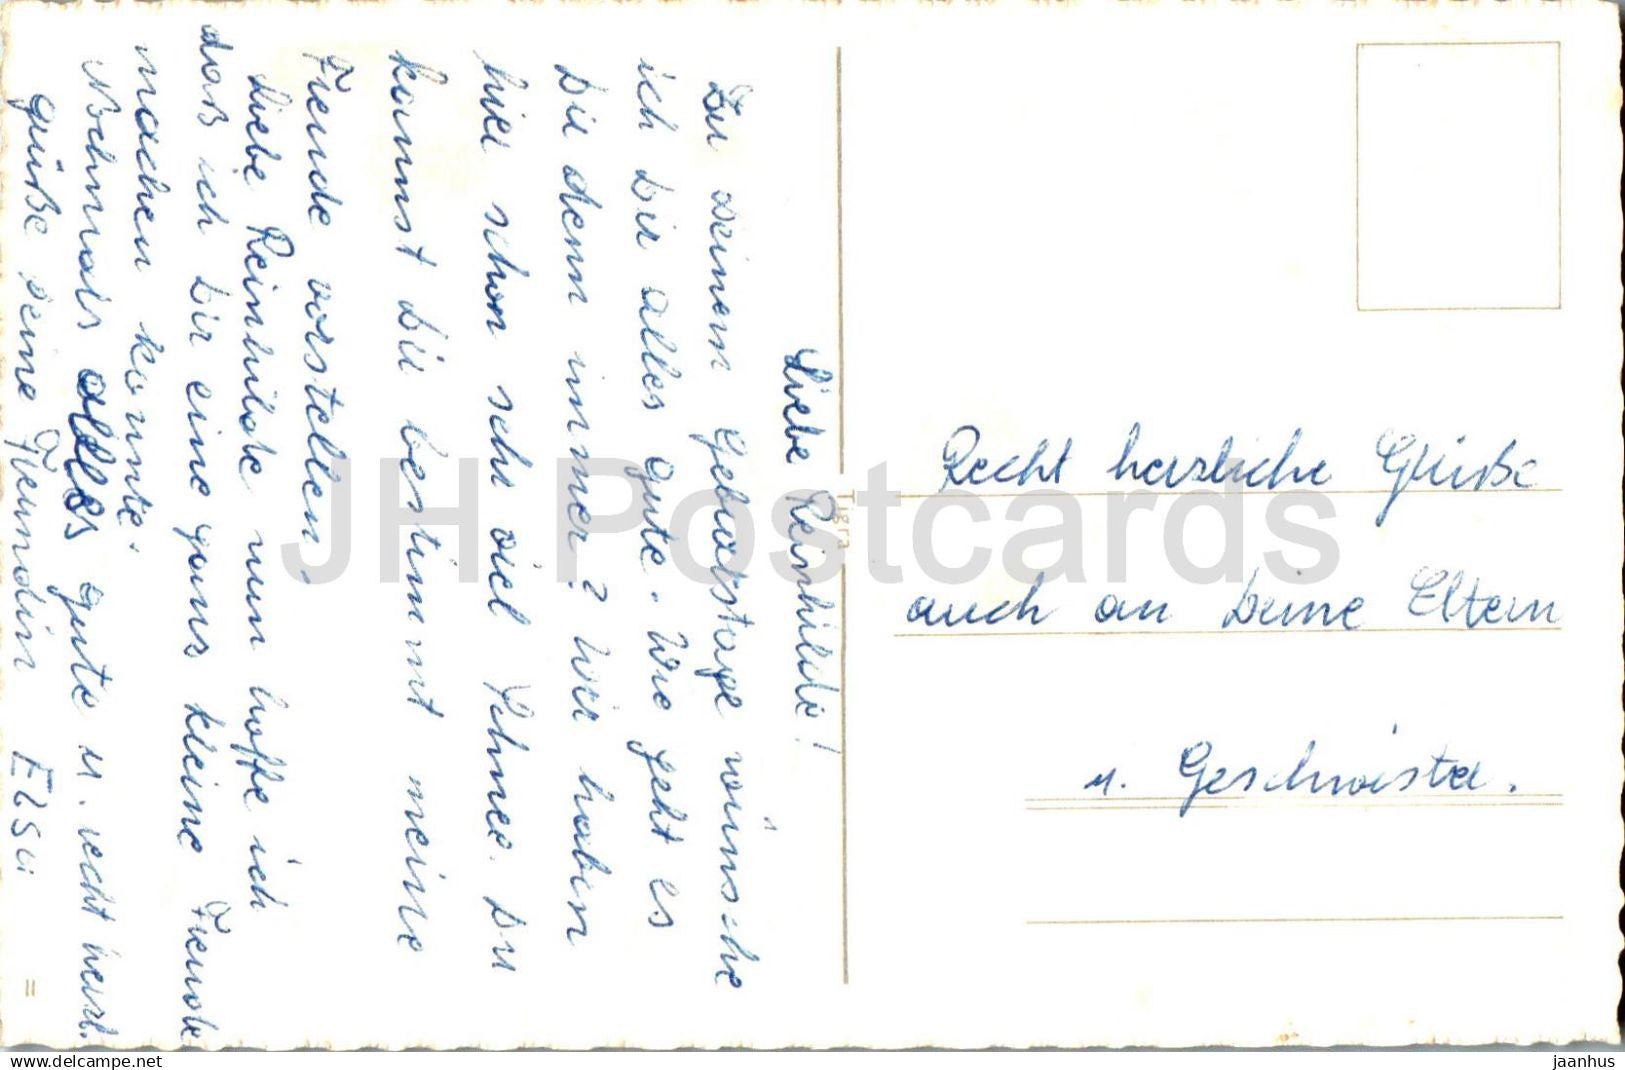 Liebe Reinhilde!
Zu Deinem Geburtstage wünsche
ich Dir alles gute. Wie geht es
Dir denn immer? Wir haben
hier schon sehr viel Schnee. Du
kannst Dir bestimmt meine
Freude vorstellen.
Liebe Reinhilde nun hoffe ich
daß ich Dir eine ganz kleine Freude
machen konnte.
Nochmals alles gute u. recht herzl.
grüße Deine Freundin Elsi
=
Tigra
Recht herzliche Grüße
auch an Deine Eltern
u. Geschwister.
JH Postcards
www.delcampe.net
jaanhus